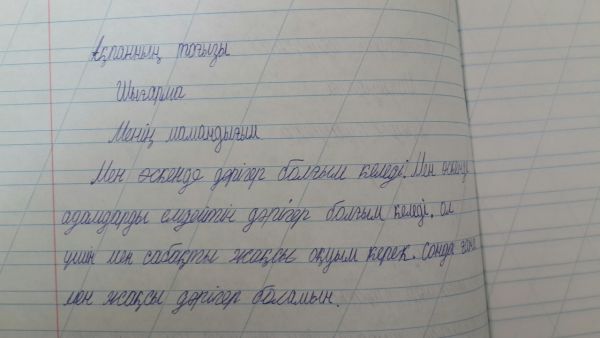 Ақпанның тоғызы
Шығарма
Менің мамандығым
Мен өскенде дәрігер болғым келеді. Мен
адамдарды емдейтін дәрігер болғым келеді. ол
үшін мен сабақты жақсы оқуым керек. Сонда ғана
мен жақсы дәрігер боламын.